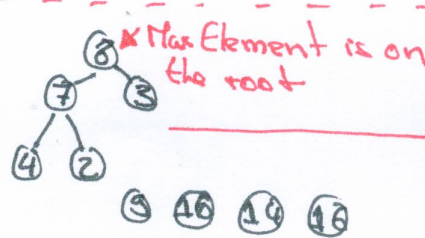 8 Max Element is on
the root
7 3
4 2
9 16 14